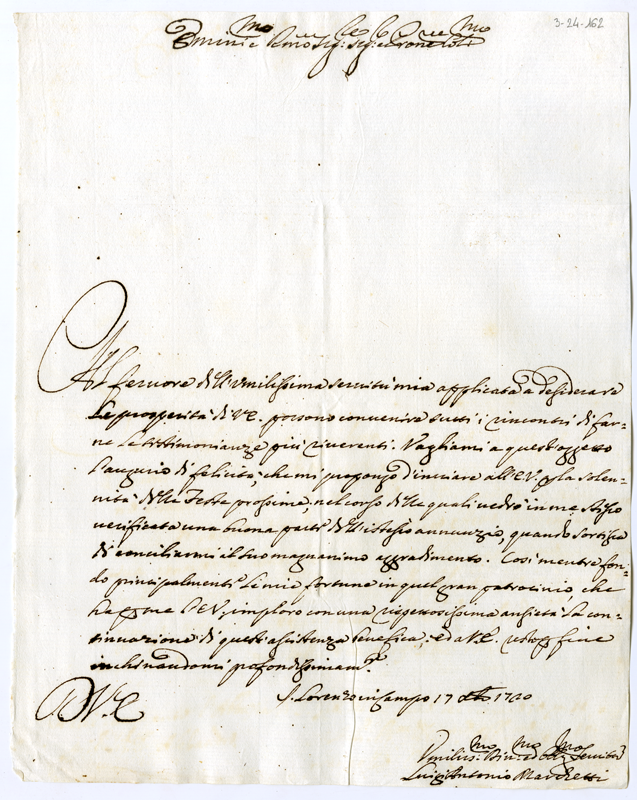 3-24-162
Emin.mo e Rmo Sig.r Sig.r e Prone Col.mo
Al fervore dell'Umilissima servitù mia applicata a desiderare
Le prosperità di V.E. possono convenire tutti i rincontri di far-
ne Le testimonianze più riverenti. Vagliami a quest'oggetto
L'augurio di felicità, che mi propongo d'inviare all'E.V. p la solen-
nità delle Feste prossime, nel corso delle quali vedrò in me stesso
verificata una buona parte dell'istesso annunzio, quando sortisca
di conciliarmi il suo magnanimo aggradimento. Così mentre fon-
do principalmente Le mie fortune in quel gran patrocinio, che
ha per me L'E.V., imploro con una rispettosissima ansietà La con-
tinuazione di quest'assistenza benefica, ed a V.E. resto p fine
inchinandomi profondissimam.te
S. Lorenzo in Campo 17 Xbre 1700
D.V.E.
Umiliss.mo Div.mo ed Obl.mo Servitore
Luigi Antonio Marchetti